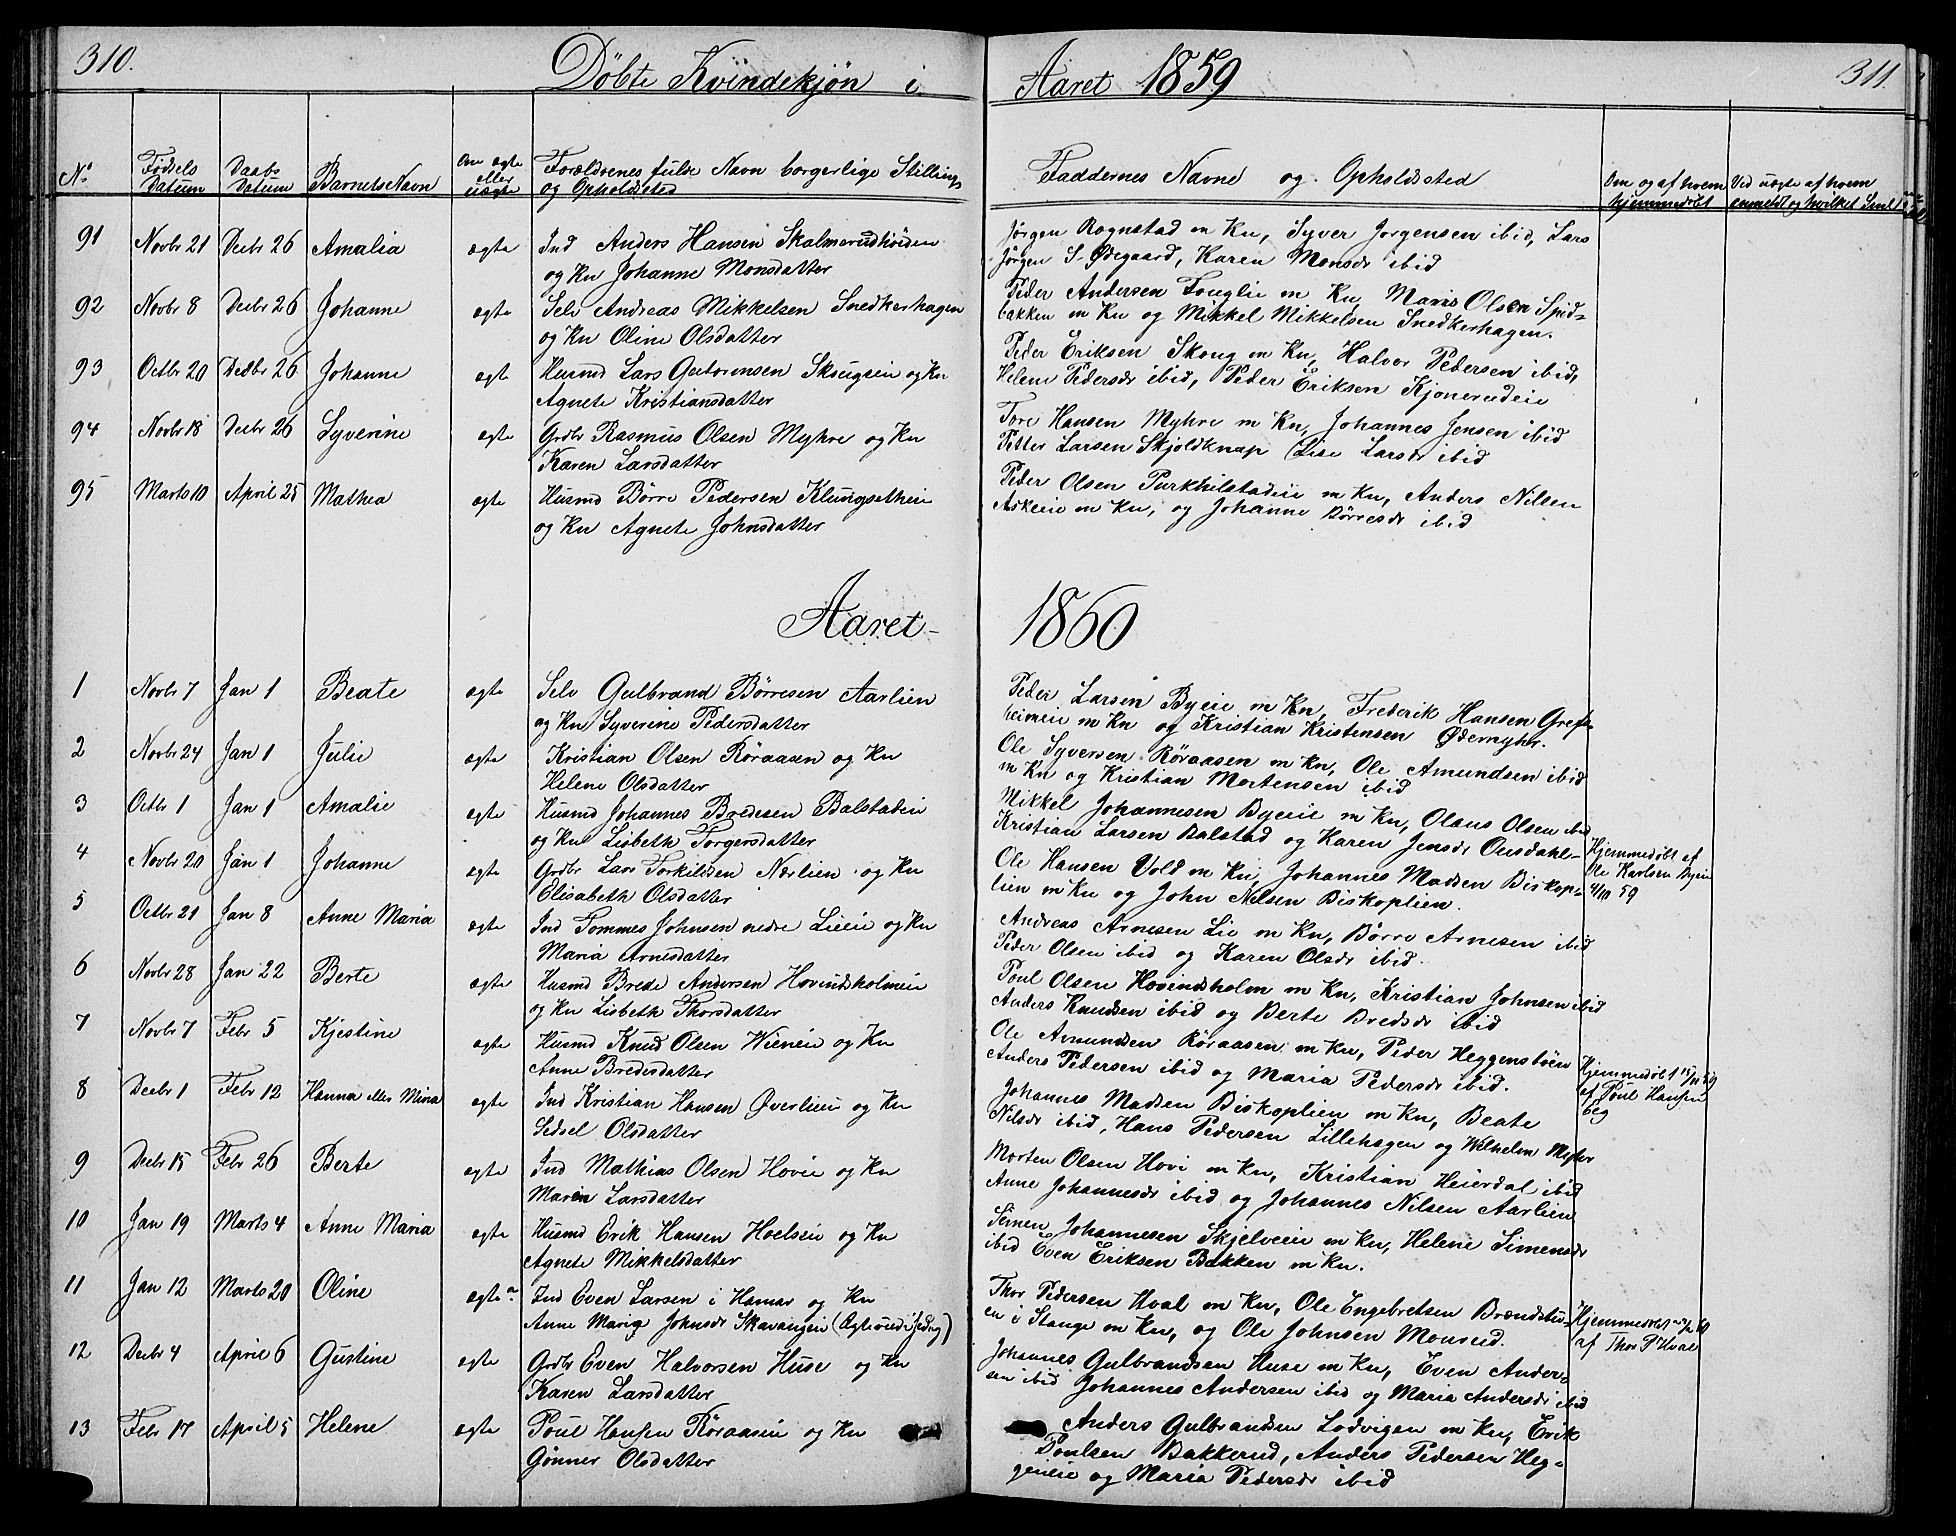 310.
Döbte Kvindekjøn i Aaret 1859
311.
No Fødsels Datum Daabs Datum Barnets Navn Om ægte eller uægte Forældrenes fulde Navn borgerlige Stilling og Opholdssted
Faddernes Navne og Opholdssted Om og af hvem hjemmedøbt Ved uægte af hvem anmeldt og hvilket
91 Novbr 21 Decbr 26 Amalia ægte Ind Anders Hansen Skalmerudhöiden
og Kn Johanne Monsdatter
Jörgen Rognstad m Kn, Syver Jorgensen ibid, Lars
Jörgen S. Ødegaard, Karen Monsdr ibid
92 Novbr 8 Decbr 26 Johanne ægte Selv Andreas Mikkelsen Snedkerhagen
og Kn Oline Olsdatter
Peder Andersen Fouglie m Kn, Maris Olsen Spid-
bakken m Kn og Mikkel Mikkelsen Snedkerhagen.
93 Octbr 20 Decbr 26 Johanne ægte Husmd Lars Gutormsen Skougeie og Kn
Agnete Kristiansdatter
Peder Eriksen Skoug m Kn, Halvor Pedersen ibid,
Helene Pedersdr ibid, Peder Eriksen Kjonerudeie
94 Novbr 18 Decbr 26 Syverine ægte Grdbr Rasmus Olsen Myhre og Kn
Karen Larsdatter
Tore Hansen Myhre m Kn, Johannes Jensen ibid
Petter Larsen Skjoldknap Lise Larsdr ibid
95 Marts 10 April 25 Mathea ægte Husmd Börre Pedersen Klungsetheie
og Kn Agnete Johnsdatter
Peder Olsen Purkhilstadeie m Kn, Anders Nilsen
Askeie m Kn, og Johanne Börresdr ibid
Aaret 1860
1 Novbr 7 Jan 1 Beate ægte Selv Gulbrand Börresen Aarlien
og Kn Syverine Pedersdatter
Peder Larsen Byeie m Kn, Frederik Hansen Grefs-
heimeie m Kn og Kristian Kristensen Ødemyhr.
2 Novbr 24 Jan 1 Julie ægte Kristian Olsen Röraasen og Kn
Helene Olsdatter
Ole Syversen Röraasen m Kn, Ole Amundsen ibid
m Kn og Kristian Mortensen ibid
3 Octbr 1 Jan 1 Amalie ægte Husmd Johannes Bredesen Balstadeie
og Kn Lisbeth Torgersdatter
Mikkel Johannesen Byeie m Kn, Olaus Olsen ibid
Kristian Larsen Balstad og Karen Jensdr Ousdahl-
4 Novbr 20 Jan 1 Johanne ægte Grdbr Lars Torkildsen Nærlien og Kn
Elisabeth Olsdatter
Ole Hansen Vold m Kn, Johannes Madsen Biskop-
lien m Kn og John Nelsen Biskoplien.
Hjemmedöbt af
Ole Karlsen Byeie
4/10 59
5 Octbr 21 Jan 8 Anne Maria ægte Ind Tommes Johnsen nedre Lieeie og Kn
Maria Arnesdatter
Andreas Arnesen Lie m Kn, Börre Arnesen ibid
Peder Olsen ibid og Karen Olsdr ibid.
6 Novbr 28 Jan 22 Berte ægte Husmd Brede Andersen Hovindsholmeie
og Kn Lisbeth Thorsdatter
Poul Olsen Hovindsholm m Kn, Kristian Johnsen ibid
Anders Knudsen ibid og Berte Bredsdr ibid
7 Novbr 7 Febr 5 Kjestine ægte Husmd Knud Olsen Wieneie og Kn
Anne Bredesdatter
Ole Amundsen Röraasen m Kn, Peder Heggenstöen
Anders Pedersen ibid og Maria Pedersdr ibid.
8 Decbr 1 Febr 12 Hanna eller Mina ægte Ind Kristian Hansen Øverlieie og Kn
Sedsel Olsdatter
Johannes Madsen Biskoplien m Kn, Beate
Nilsdr ibid, Hans Pedersen Lillehagen og Wilhelm Myhr
Hjemmedöbt
af Poul Hansen
Eeg
9 Decbr 15 Febr 26 Berte ægte Ind Mathias Olsen Hovie og Kn
Maren Larsdatter
Morten Olsen Hovi m Kn, Kristian Heierdal ibid
Anne Johannesdr ibid og Johannes Nilsen Aarlien
10 Jan 19 Marts 4 Anne Maria ægte Husmd Erik Hansen Hoelseie og Kn
Agnete Mikkelsdatter
Semen Johannesen Skjelveeie m Kn, Helene Simensdr
ibid Even Eriksen Bakken m Kn.
11 Jan 12 Marts 20 Oline ægte Ind Even Larsen i Hamar og Kn
Anne Marie Johnsdr Skavangeie
Thor Pedersen Hval m Kn, Ole Engebretsen Brændstu-
en i Stange m Kn, og Ole Johnsen Monrud.
Hjemmedöbt
af Thor P Hval
12 Decbr 4 April 6 Gustine ægte Grdbr Even Halvorsen Huse og Kn
Karen Larsdatter
Johannes Gulbrandsen Huse m Kn, Even Ander-
sen ibid Johannes Andersen ibid og Maria Andersdr ibid
13 Febr 17 April 5 Helene ægte Poul Hansen Röraasen og Kn
Gönner Olsdatter
Anders Gulbrandsen Lodvigen m Kn, Erik
Poulsen Bakkerud, Anders Pedersen Heg-
geneie og Maria Pedersdr ibid